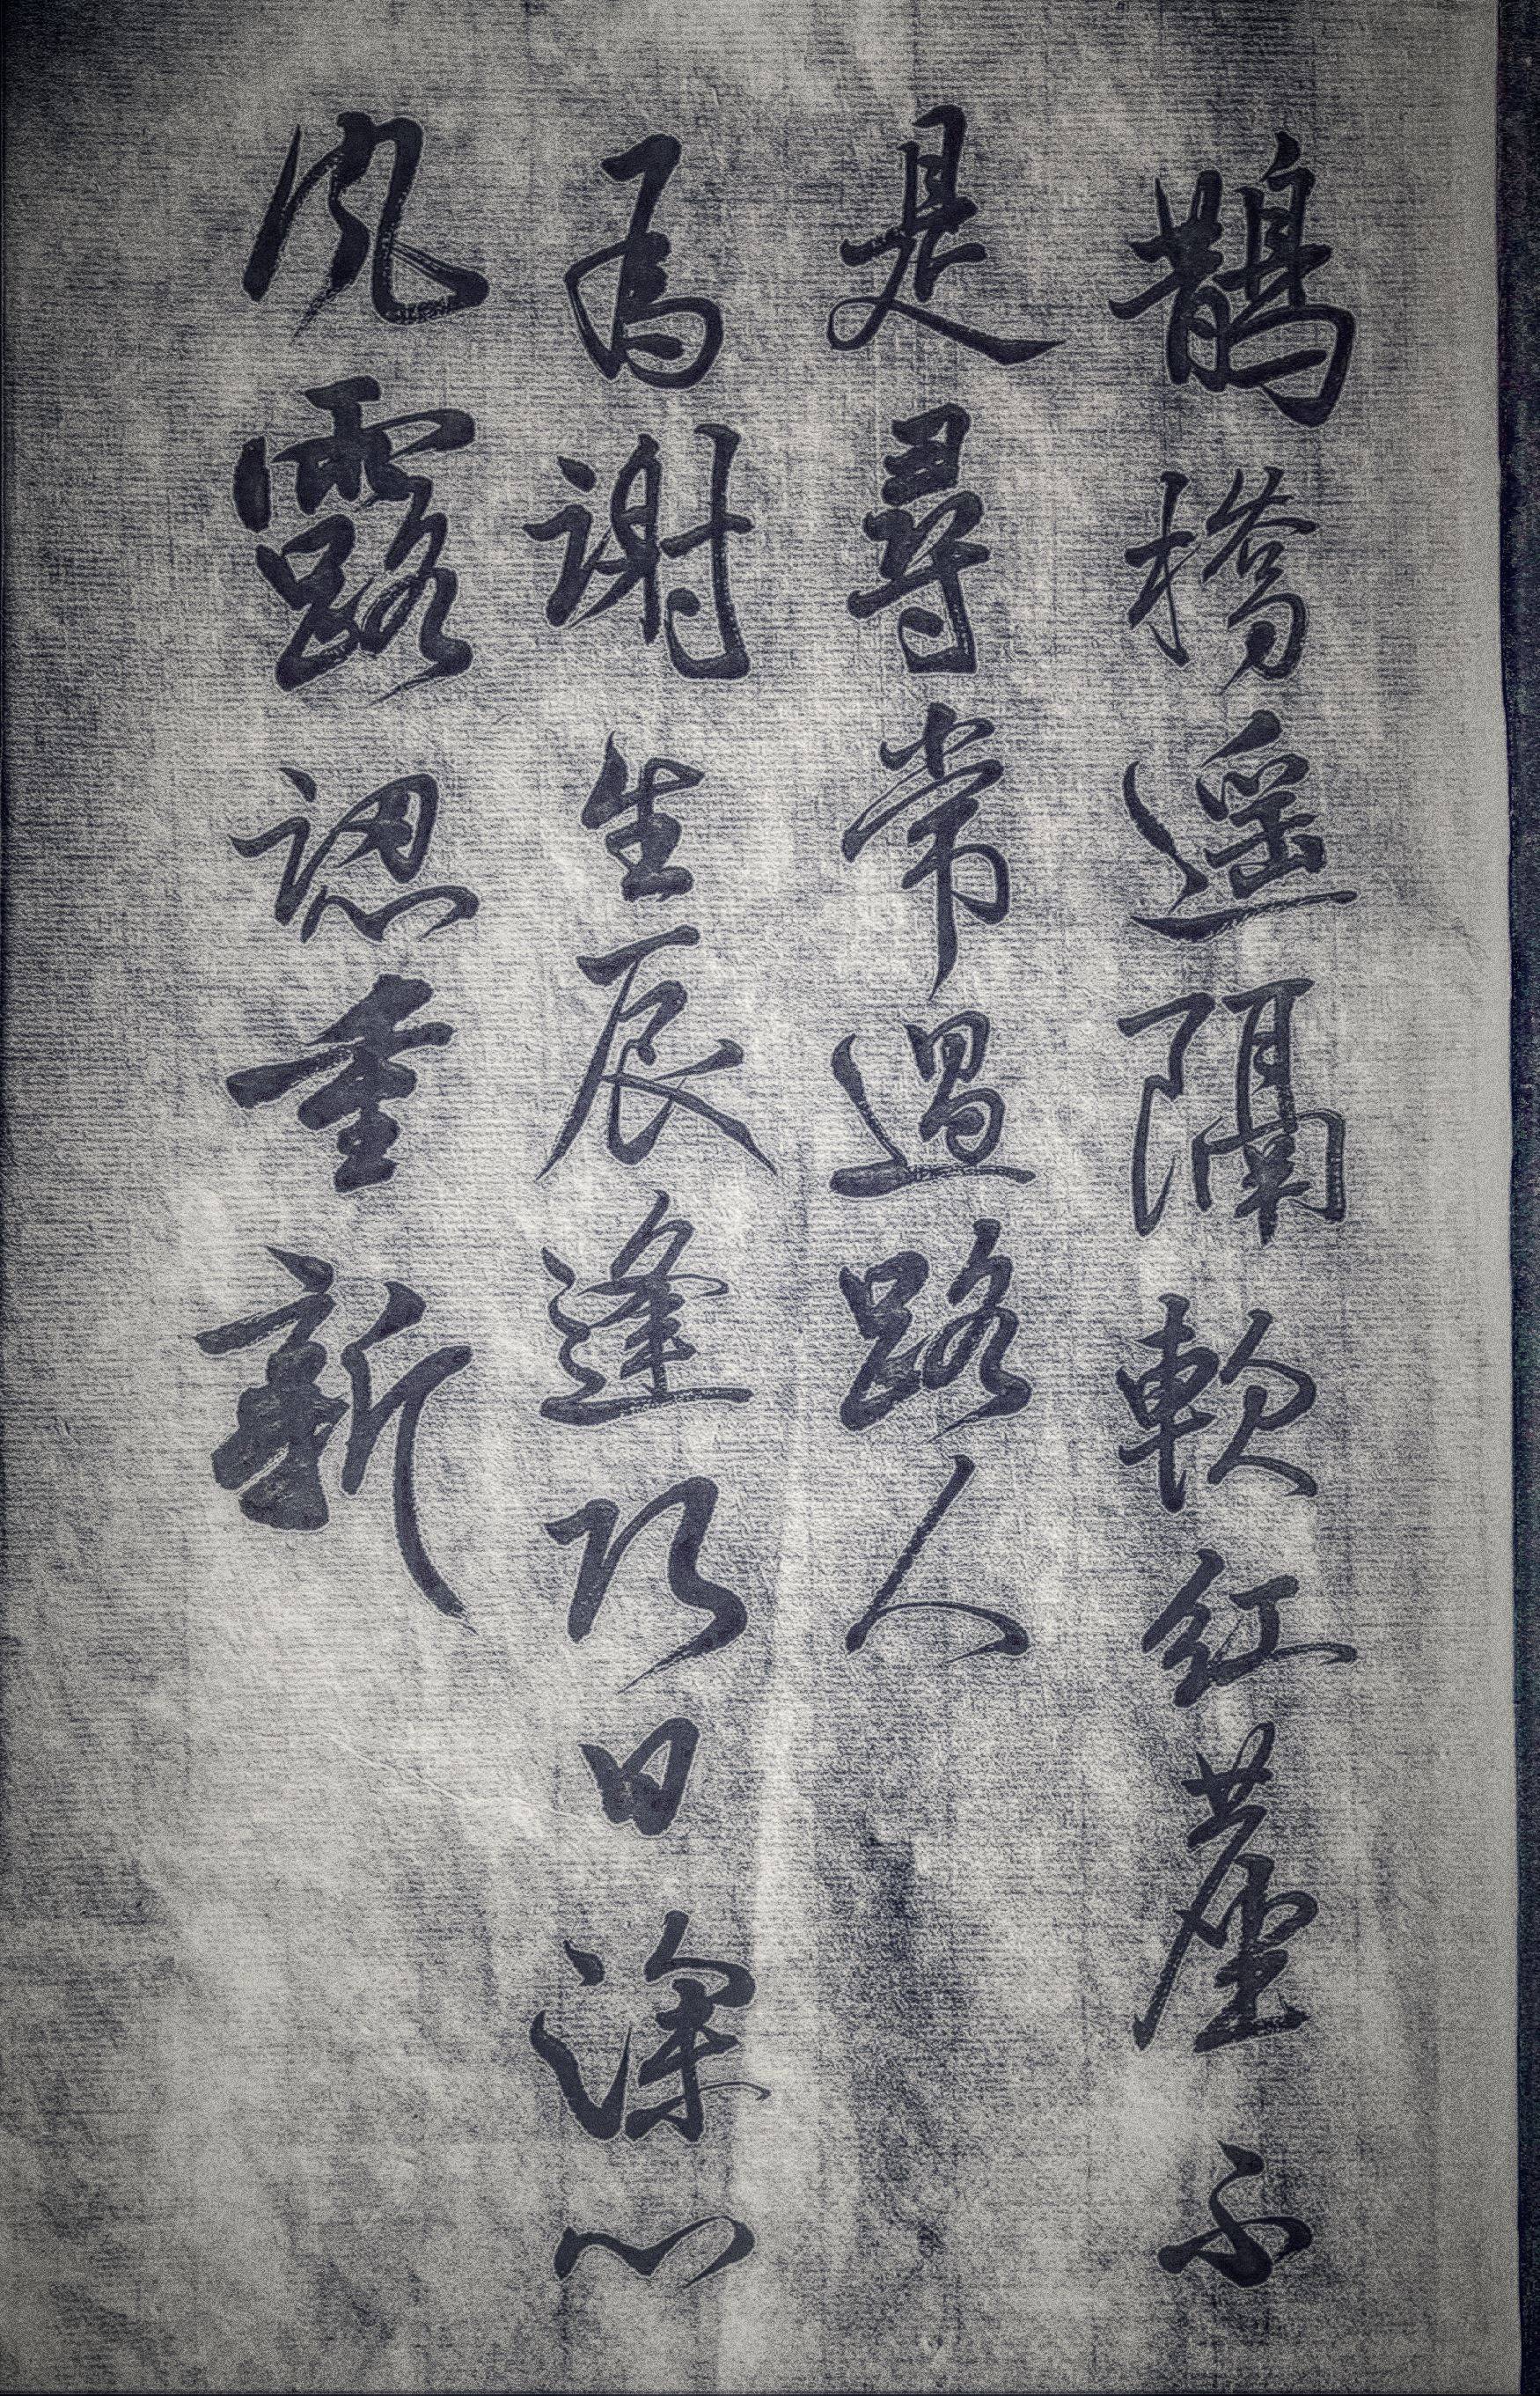 鵲橋遥隔軟紅塵不
是尋常過路人
為謝生辰逢巧日深心
風露認重新